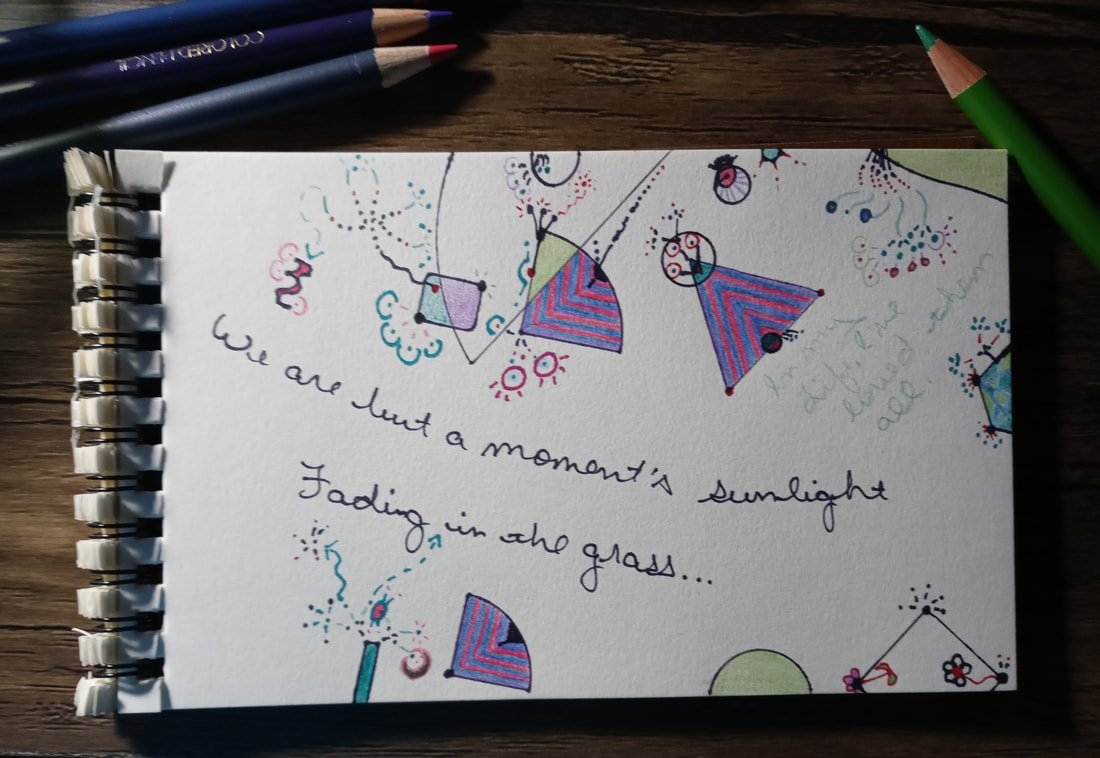 COLORED PENCIL
In my
life, I've
loved them
all.
We are but a moment's sunlight
Fading in the grass...